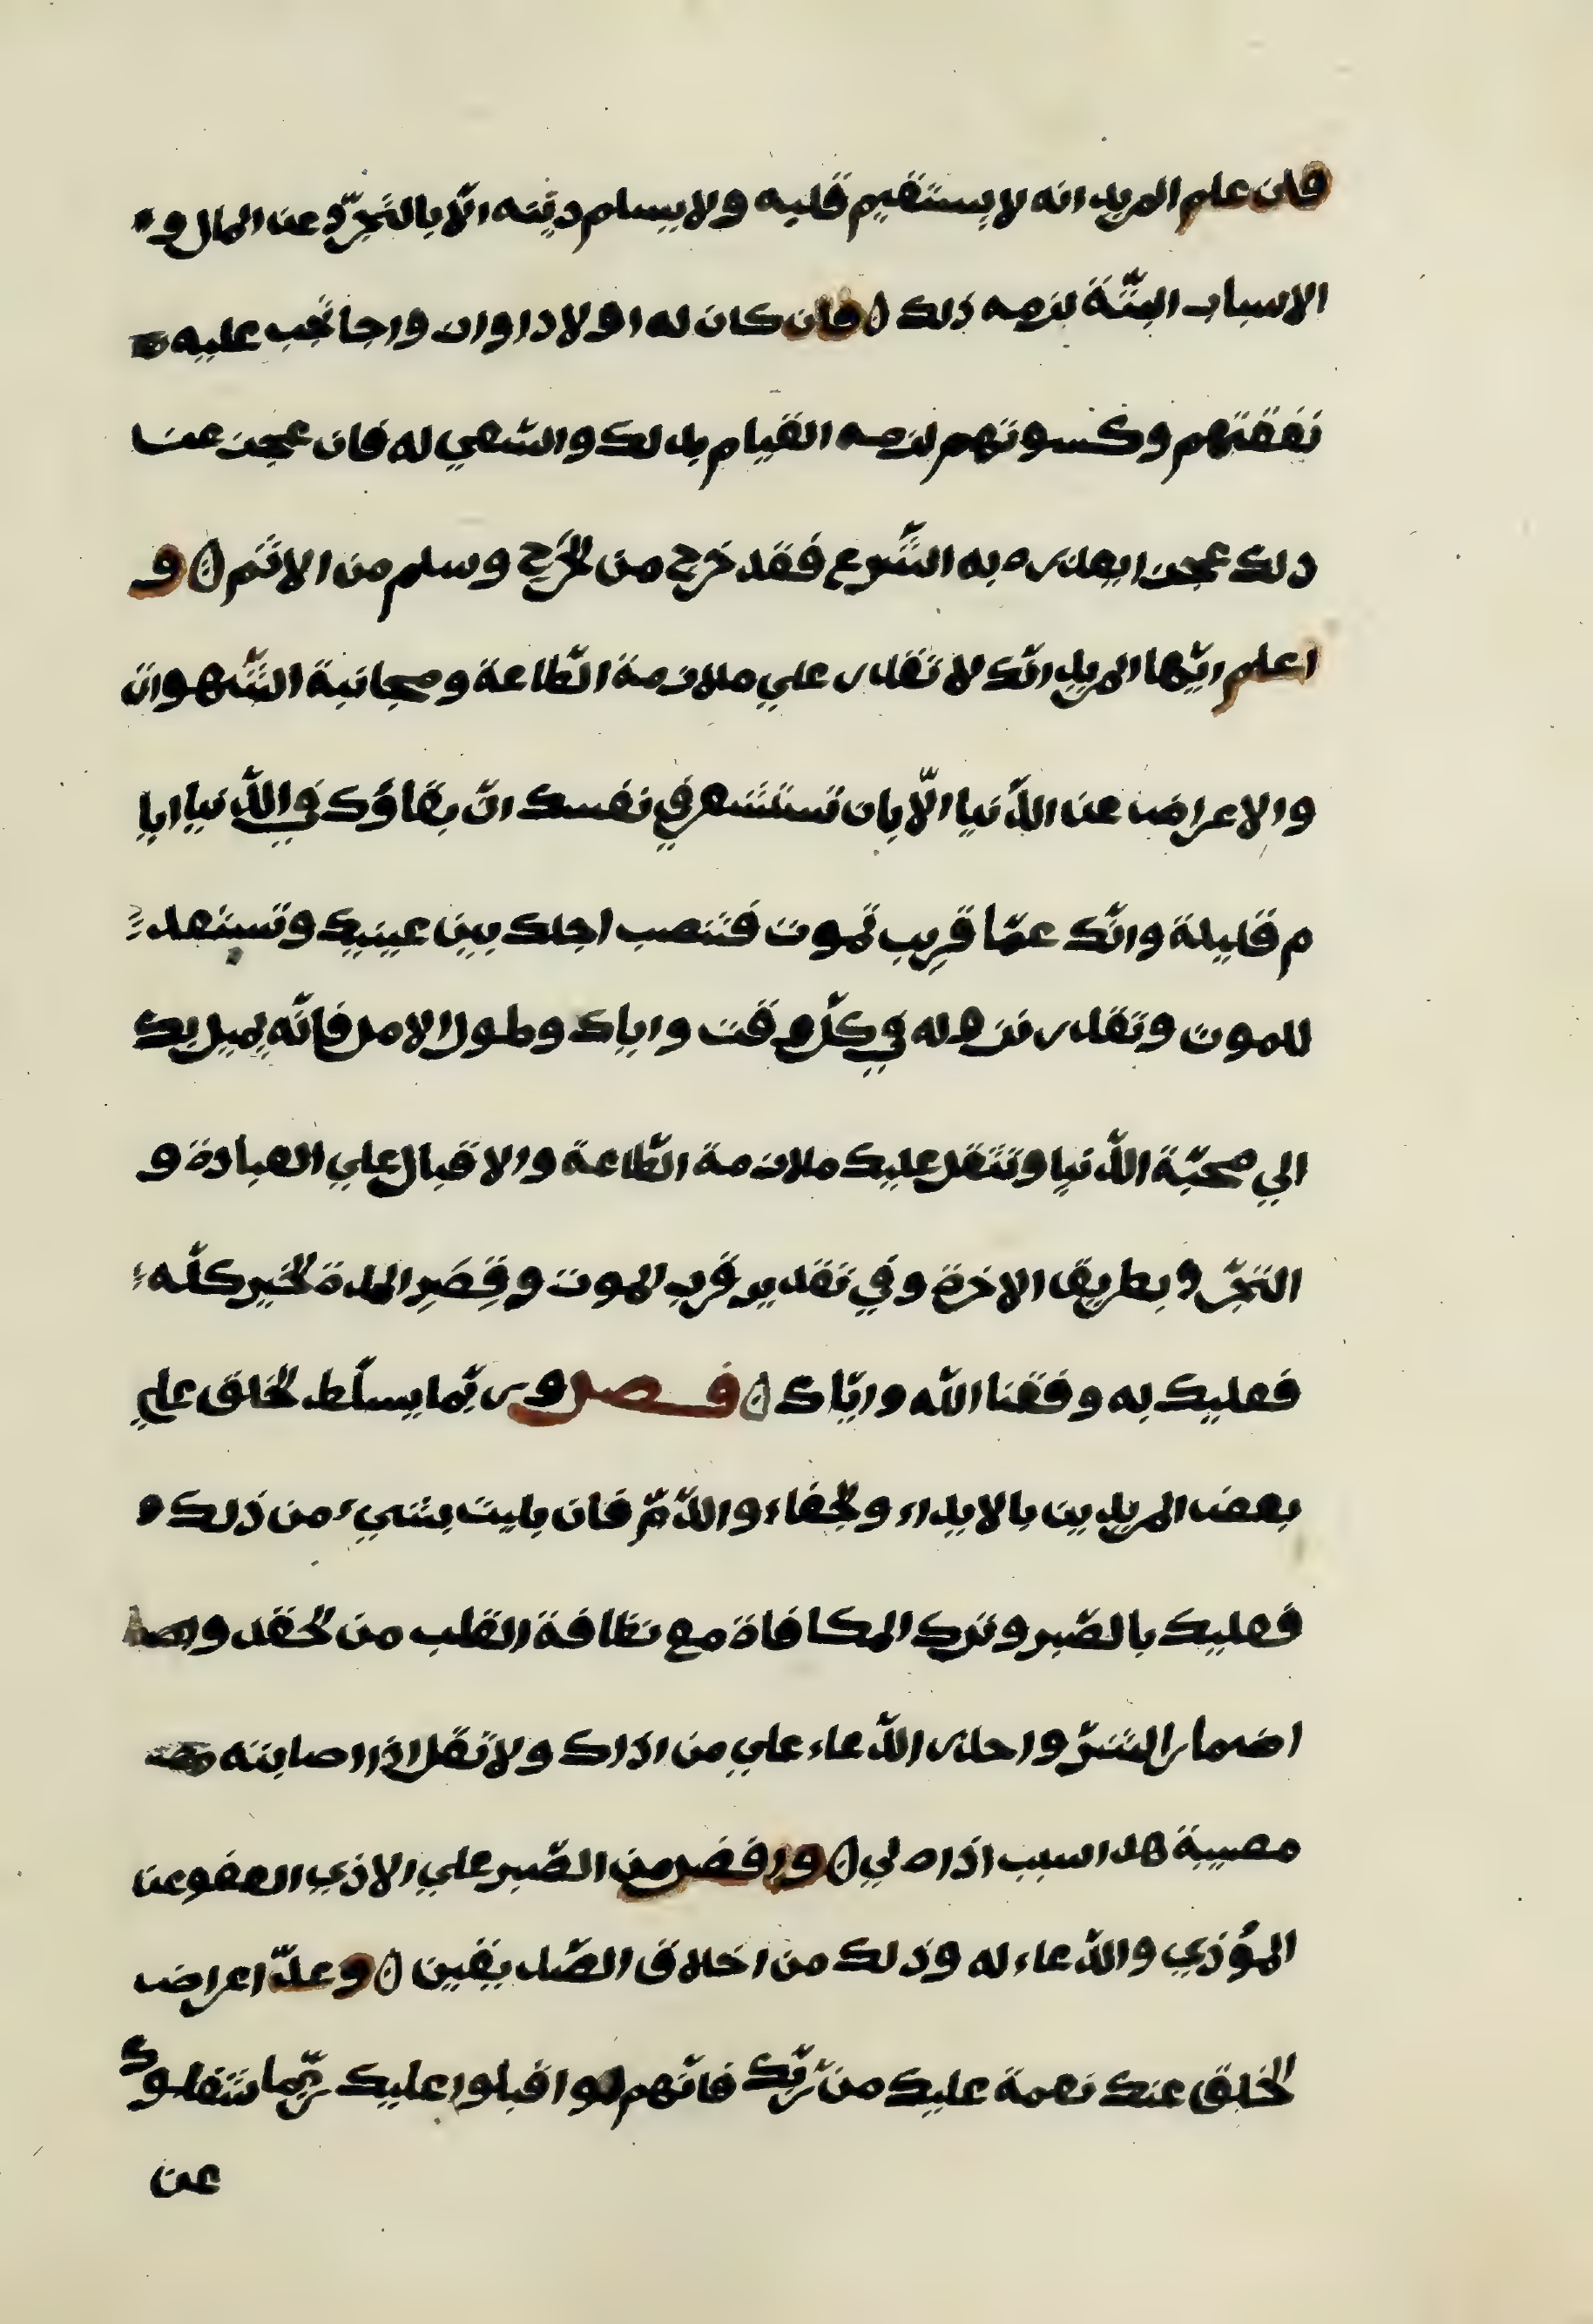 فان علم المريد انه لا يستقيم قلبه ولا يسلم دينه الّا بالتّجرّد عن المال و
الاسباب البتّة لزمه ذلك فان كان له اولاد او ازواجا تجب عليه
نفقتهم وكسوتهم لزمه القيام بذلك والسّعي له فان عجز عن
ذلك عجزا يعذره به الشّرع فقد خرج من الحَرَج وسلم من الاثم و
اعلم ايّها المريد انّك لا تقدر علي ملازمة الطّاعة ومجانبة الشّهوات
والاعراض عن الدّنيا الّا بان تستشعر في نفسك انّ بقاؤك في الدّنيا ايا
م قليلة وانّك عمّا قريب تموت فتنصب اجلك بين عينيك وتستعد
للموت وتقدر نزوله في كلّ وقت واياك وطول الامل فانّه يميل بك
الي محبّة الدّنيا وتثقل عليك ملازمة الطّاعة والاقبال علي العبادة و
التجرّد بطريق الاخرة وفي تقدير قرب الموت وقِصَرِ المدة الخير كلّه
فعليك به وفقنا الله وايّاك فصل وربّما يسلّط الخلق علي
بعض المريدين بالايذاء والجفاء والذّمّ فان بليت بشيء من ذلك
فعليك بالصّبر وترك المكافاة مع نظافة القلب من الحقد و
اضمار الشّرّ واحذر الدّعاء علي من اذاك ولا تقل اذا اصابته
مصيبة هذا سبب اذاه لي وافضل من الصّبر علي الاذي العفو عن
المؤذي والدّعاء له وذلك من اخلاق الصّديقين وعدّ اعراض
الخلق عنك نعمة عليك من ربّك فانّهم لو اقبلوا عليك ربّما شغلوك
عن